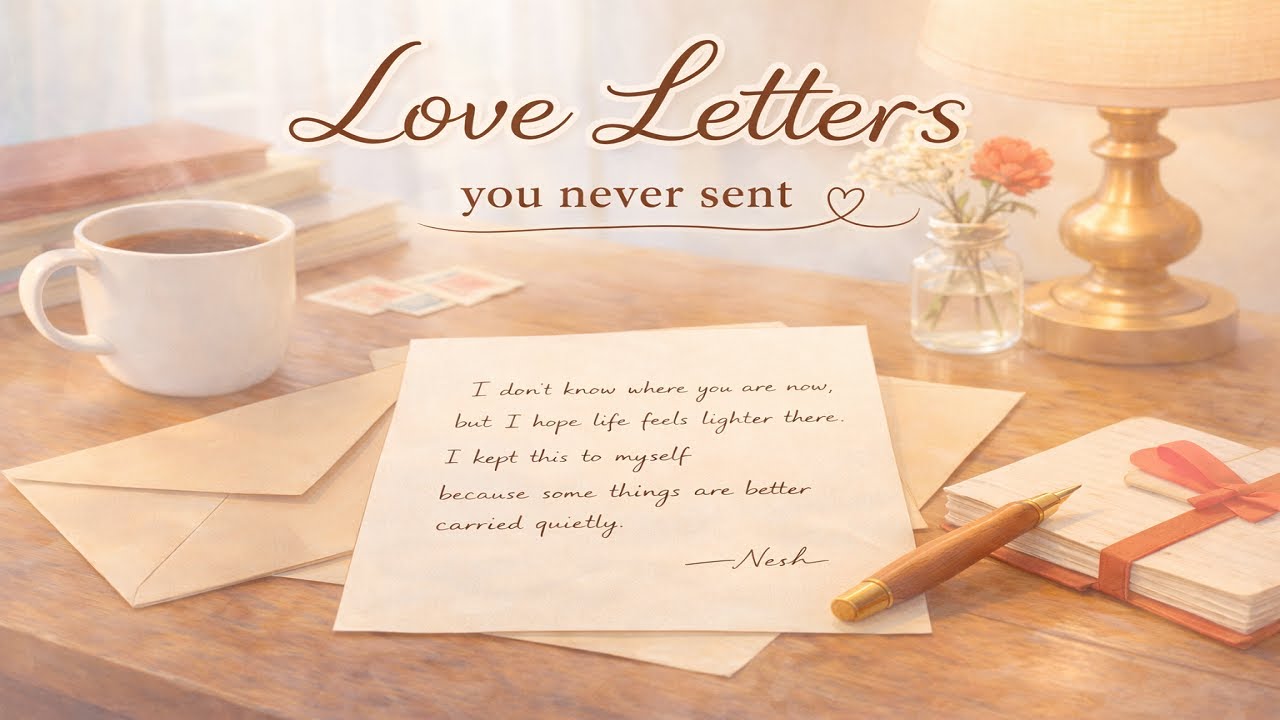 Love Letters
you never sent
I don't know where you are now,
but I hope life feels lighter there.
I kept this to myself
because some things are better
carried quietly.
—Nesh